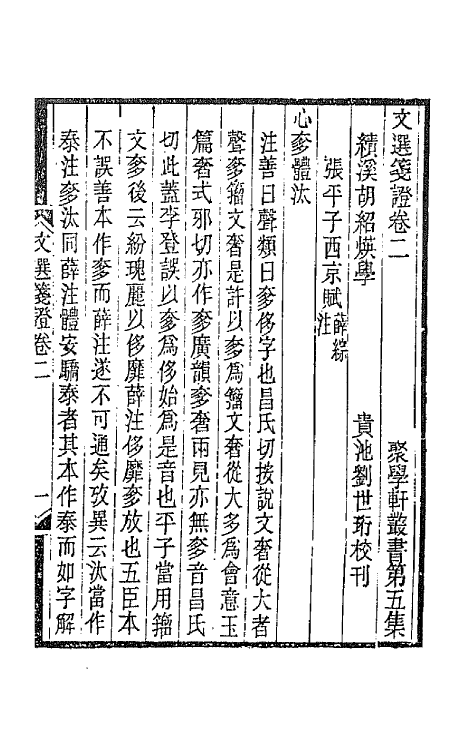 文選箋證卷二　聚學軒叢書第五集
績溪胡紹煐學　貴池劉世珩校刊
張平子西京賦薛綜注
心奓體汰
注善曰聲類曰奓侈字也昌氏切按說文奢從大者
聲奓籀文奢是許以奓爲籀文奢從大多爲會意玉
篇奢式邪切亦作奓廣韻奓奢兩見亦無奓音昌氏
切此蓋李登誤以奓爲侈始爲是音也平子當用籀
文奓後云紛瑰麗以侈靡薛注侈靡奓放也五臣本
不誤善本作奓而薛注遂不可通矣攷異云汰當作
泰注奓汰同薛注體安驕泰者其本作泰而如字解
文選箋證卷二
一